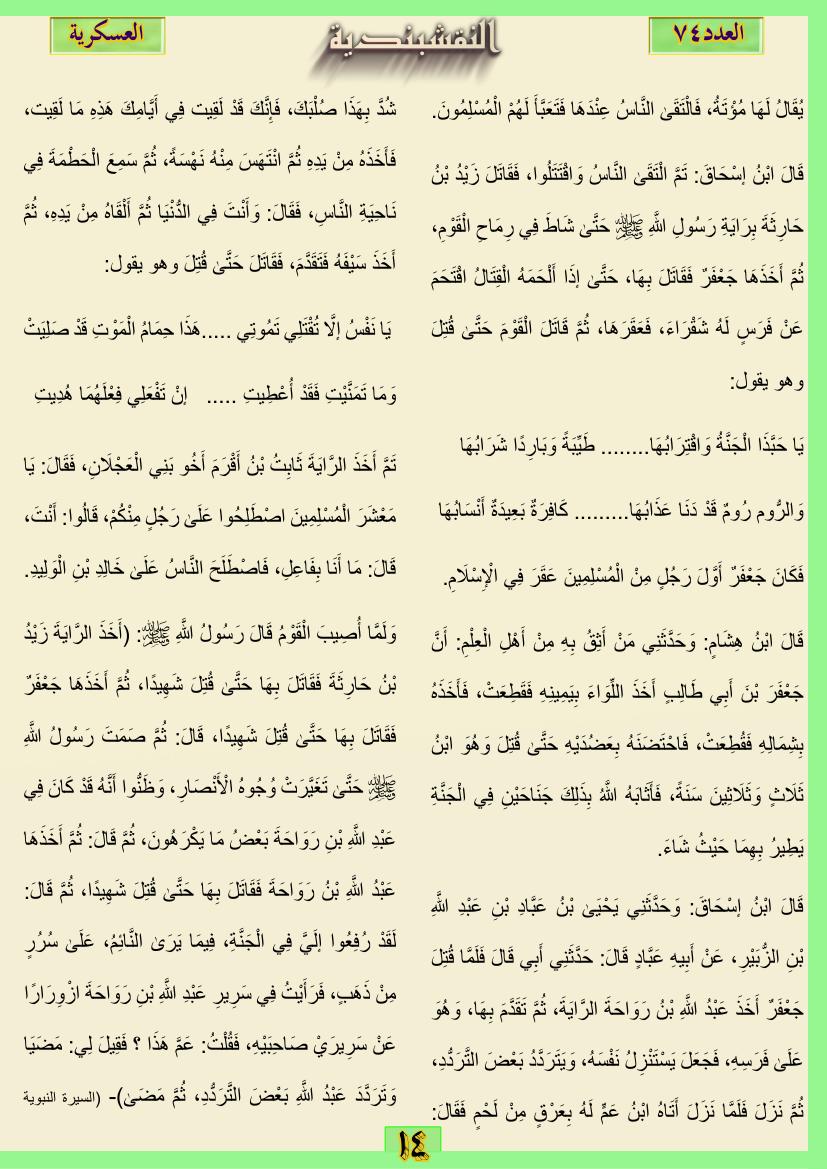 العدد٧٤
النقشبندية
العسكرية
يُقَالُ لَهَا مُؤْتَةُ، فَالْتَقَىٰ النَّاسُ عِنْدَهَا فَتَعَبَّأَ لَهُمْ الْمُسْلِمُونَ.
قَالَ ابْنُ إسْحَاقَ: تَمَّ التَقَىٰ النَّاسُ وَاقْتَتَلُوا، فَقَاتَلَ زَيْدُ بْنُ
حَارِثَةَ بِرَايَةِ رَسُولِ اللَّهِ ﷺ حَتَّىٰ شَاطَ فِي رِمَاحِ الْقَوْمِ،
ثُمَّ أَخَذَهَا جَعْفَرٌ فَقَاتَلَ بِهَا، حَتَّىٰ إذَا أَلْحَمَهُ الْقِتَالُ اقْتَحَمَ
عَنْ فَرَسٍ لَهُ شَقْرَاءَ، فَعَقَرَهَا، ثُمَّ قَاتَلَ الْقَوْمَ حَتَّىٰ قُتِلَ
وهو يقول:
يَا حَبَّذَا الْجَنَّةُ وَاقْتِرَابُهَا........ طَيِّبَةً وَبَارِدًا شَرَابُهَا
وَالرُّوم رُومٌ قَدْ دَنَا عَذَابُهَا......... كَافِرَةٌ بَعِيدَةٌ أَنْسَابُهَا
فَكَانَ جَعْفَرٌ أَوَّلَ رَجُلٍ مِنْ الْمُسْلِمِينَ عَقَرَ فِي الْإِسْلَامِ.
قَالَ ابْنُ هِشَامٍ: وَحَدَّثَنِي مَنْ أَثِقُ بِهِ مِنْ أَهْلِ الْعِلْمِ: أَنَّ
جَعْفَرَ بْنَ أَبِي طَالِبٍ أَخَذَ اللِّوَاءَ بِيَمِينِهِ فَقَطِعَتْ، فَأَخَذَهُ
بِشِمَالِهِ فَقُطِعَتْ، فَاحْتَضَنَهُ بِعَضُدَيْهِ حَتَّىٰ قُتِلَ وَهُوَ ابْنُ
ثَلَاثٍ وَثَلَاثِينَ سَنَةً، فَأَثَابَهُ اللَّهُ بِذَلِكَ جَنَاحَيْنِ فِي الْجَنَّةِ
يَطِيرُ بِهِمَا حَيْثُ شَاءَ.
قَالَ ابْنُ إسْحَاقَ: وَحَدَّثَنِي يَحْيَىٰ بْنُ عَبَّادِ بْنِ عَبْدِ اللَّهِ
بْنِ الزُّبَيْرِ، عَنْ أَبِيهِ عَبَّادٍ قَالَ: حَدَّثَنِي أَبِي قَالَ فَلَمَّا قُتِلَ
جَعْفَرٌ أَخَذَ عَبْدُ اللَّهِ بْنُ رَوَاحَةَ الرَّايَةَ، ثُمَّ تَقَدَّمَ بِهَا، وَهُوَ
عَلَىٰ فَرَسِهِ، فَجَعَلَ يَسْتَنْزِلُ نَفْسَهُ، وَيَتَرَدَّدُ بَعْضَ التَّرَدُّدِ،
ثُمَّ نَزَلَ فَلَمَّا نَزَلَ أَتَاهُ ابْنُ عَمٍّ لَهُ بِعَرْقٍ مِنْ لَحْمٍ فَقَالَ:
شُدَّ بِهَذَا صُلْبَكَ، فَإِنَّكَ قَدْ لَقِيت فِي أَيَّامِكَ هَذِهِ مَا لَقِيت،
فَأَخَذَهُ مِنْ يَدِهِ ثُمَّ انْتَهَسَ مِنْهُ نَهْسَةً، ثُمَّ سَمِعَ الْحَطْمَةَ فِي
نَاحِيَةِ النَّاسِ، فَقَالَ: وَأَنْتَ فِي الدُّنْيَا ثُمَّ أَلْقَاهُ مِنْ يَدِهِ، ثُمَّ
أَخَذَ سَيْفَهُ فَتَقَدَّمَ، فَقَاتَلَ حَتَّىٰ قُتِلَ وهو يقول:
يَا نَفْسُ إلَّا تُقْتَلِي تَمُوتِي .....هَذَا حِمَامُ الْمَوْتِ قَدْ صَلِيَتْ
وَمَا تَمَنَّيْتِ فَقَدْ أُعْطِيتِ ..... إنْ تَفْعَلِي فِعْلَهُمَا هُدِيتِ
تَمَّ أَخَذَ الرَّايَةَ ثَابِتُ بْنُ أَقْرَمَ أَخُو بَنِي الْعَجْلَانِ، فَقَالَ: يَا
مَعْشَرَ الْمُسْلِمِينَ اصْطَلِحُوا عَلَىٰ رَجُلٍ مِنْكُمْ، قَالُوا: أَنْتَ،
قَالَ: مَا أَنَا بِفَاعِلٍ، فَاصْطَلَحَ النَّاسُ عَلَىٰ خَالِدِ بْنِ الْوَلِيدِ.
وَلَمَّا أُصِيبَ الْقَوْمُ قَالَ رَسُولُ اللَّهِ ﷺ: (أَخَذَ الرَّايَةَ زَيْدُ
بْنُ حَارِثَةَ فَقَاتَلَ بِهَا حَتَّىٰ قُتِلَ شَهِيدًا، ثُمَّ أَخَذَهَا جَعْفَرٌ
فَقَاتَلَ بِهَا حَتَّىٰ قُتِلَ شَهِيدًا، قَالَ: ثُمَّ صَمَتَ رَسُولُ اللَّهِ
ﷺ حَتَّىٰ تَغَيَّرَتْ وُجُوهُ الْأَنْصَارِ، وَظَنُّوا أَنَّهُ قَدْ كَانَ فِي
عَبْدِ اللَّهِ بْنِ رَوَاحَةَ بَعْضُ مَا يَكْرَهُونَ، ثُمَّ قَالَ: ثُمَّ أَخَذَهَا
عَبْدُ اللَّهِ بْنُ رَوَاحَةَ فَقَاتَلَ بِهَا حَتَّىٰ قُتِلَ شَهِيدًا، ثُمَّ قَالَ:
لَقَدْ رُفِعُوا إلَيَّ فِي الْجَنَّةِ، فِيمَا يَرَىٰ النَّائِمُ، عَلَىٰ سُرُرٍ
مِنْ ذَهَبٍ، فَرَأَيْتُ فِي سَرِيرِ عَبْدِ اللَّهِ بْنِ رَوَاحَةَ ازْوِرَارًا
عَنْ سَرِيرَيْ صَاحِبَيْهِ، فَقُلْتُ: عَمَّ هَذَا ؟ فَقِيلَ لِي: مَضَيَا
وَتَرَدَّدَ عَبْدُ اللَّهِ بَعْضَ التَّرَدُّدِ، ثُمَّ مَضَىٰ)- (السيرة النبوية
١٤